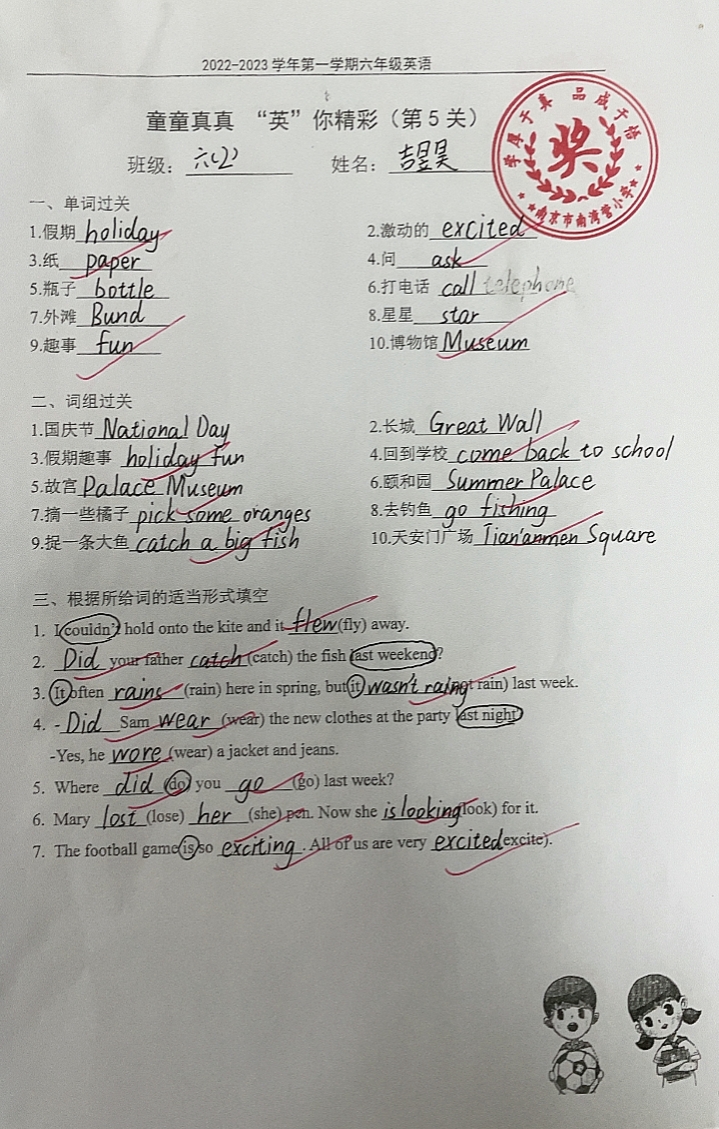 2022-2023 学年第一学期六年级英语
童童真真 “英”你精彩（第 5 关）
班级: 六(2) 姓名: 吉昱昊
学厚于真 品成于悟
奖
南京市南湾营小学
一、单词过关
1.假期 holiday 2.激动的 excited
3.纸 paper 4.问 ask
5.瓶子 bottle 6.打电话 call telephone
7.外滩 Bund 8.星星 star
9.趣事 fun 10.博物馆 Museum
二、词组过关
1.国庆节 National Day 2.长城 Great Wall
3.假期趣事 holiday fun 4.回到学校 come back to school
5.故宫 Palace Museum 6.颐和园 Summer Palace
7.摘一些橘子 pick some oranges 8.去钓鱼 go fishing
9.捉一条大鱼 catch a big fish 10.天安门广场 Tian'anmen Square
三、根据所给词的适当形式填空
1. I couldn't hold onto the kite and it flew (fly) away.
2. Did your father catch (catch) the fish last weekend?
3. It often rains (rain) here in spring, but it wasn't raing (not rain) last week.
4. - Did Sam wear (wear) the new clothes at the party last night?
-Yes, he wore (wear) a jacket and jeans.
5. Where did (do) you go (go) last week?
6. Mary lost (lose) her (she) pen. Now she is looking (look) for it.
7. The football game is so exciting. All of us are very excited (excite).